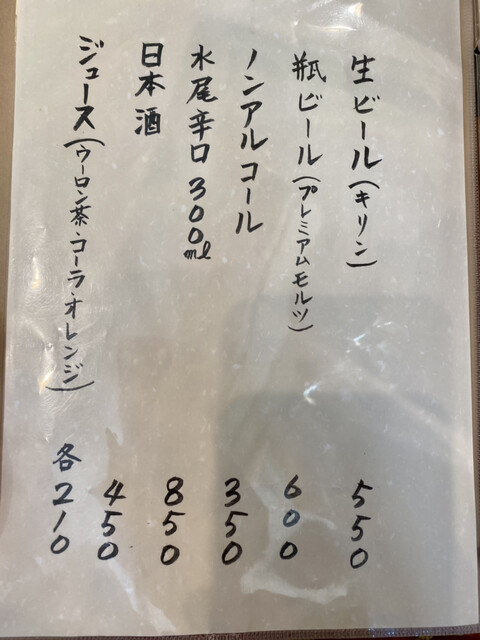 生ビール(キリン) 550
瓶ビール(プレミアムモルツ) 600
ノンアルコール 350
水尾辛口300ml 850
日本酒 450
ジュース(ウーロン茶・コーラ・オレンジ) 各210